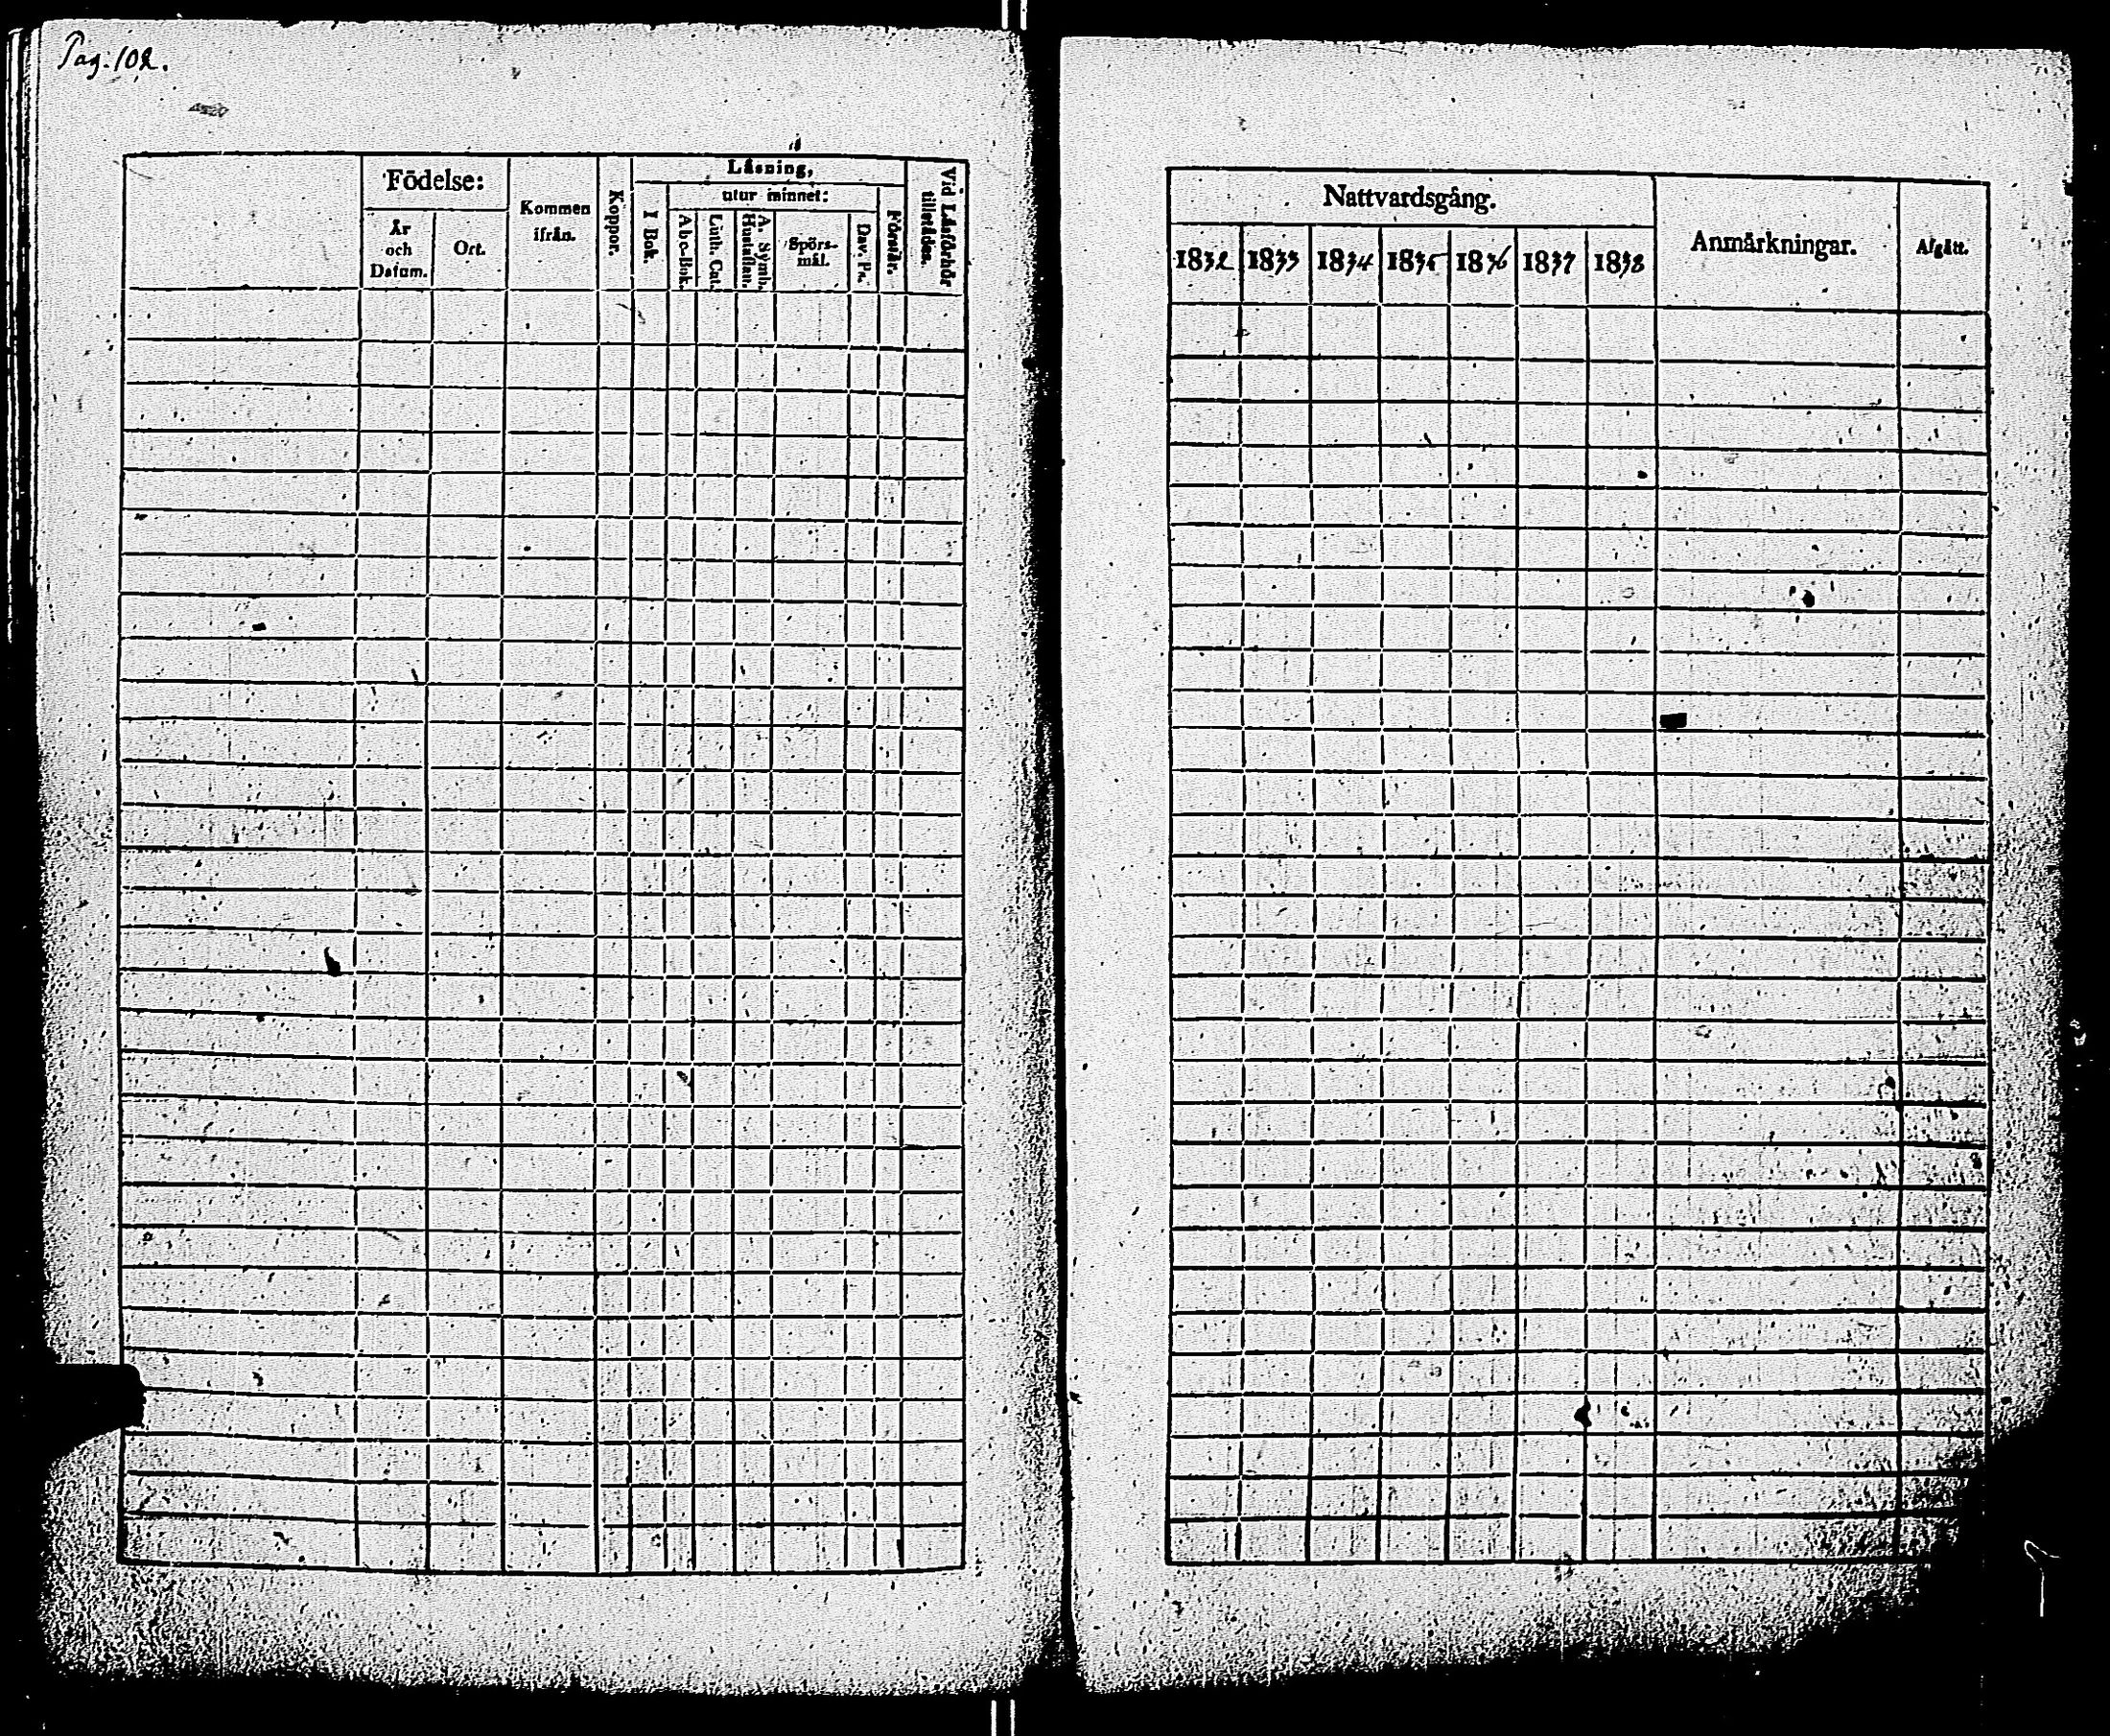 Pag. 102.
Födelse:
År
och
Datum.
Ort.
Kommen
ifrån.
Koppor.
Läsning,
I Bok.
utur minnet:
Abc-Bok.
Luth. Cat.
A. Symb.
Hustaflan.
Spörs-
mål.
Dav. Ps.
Förstår.
Vid Läsförhör
tillstädes.
Nattvardsgång.
1832 1833 1834 1835 1836 1837 1838
Anmärkningar.
Afgått.